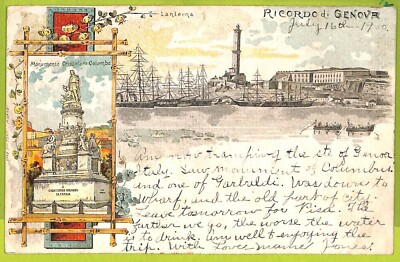 Lanterna
RICORDO di GENOVA
July 16th - 1900
Monumento Cristoforo Colombo
Am now tramping the sts of Genoa
Italy. Saw monument of Columbus
and one of Garibaldi. Was down to
wharf, and the old part of city.
Leave tomorrow for Pisa. The
further we go, the worse the water
is to drink. Am well & enjoying the
trip. With Love: Jones.